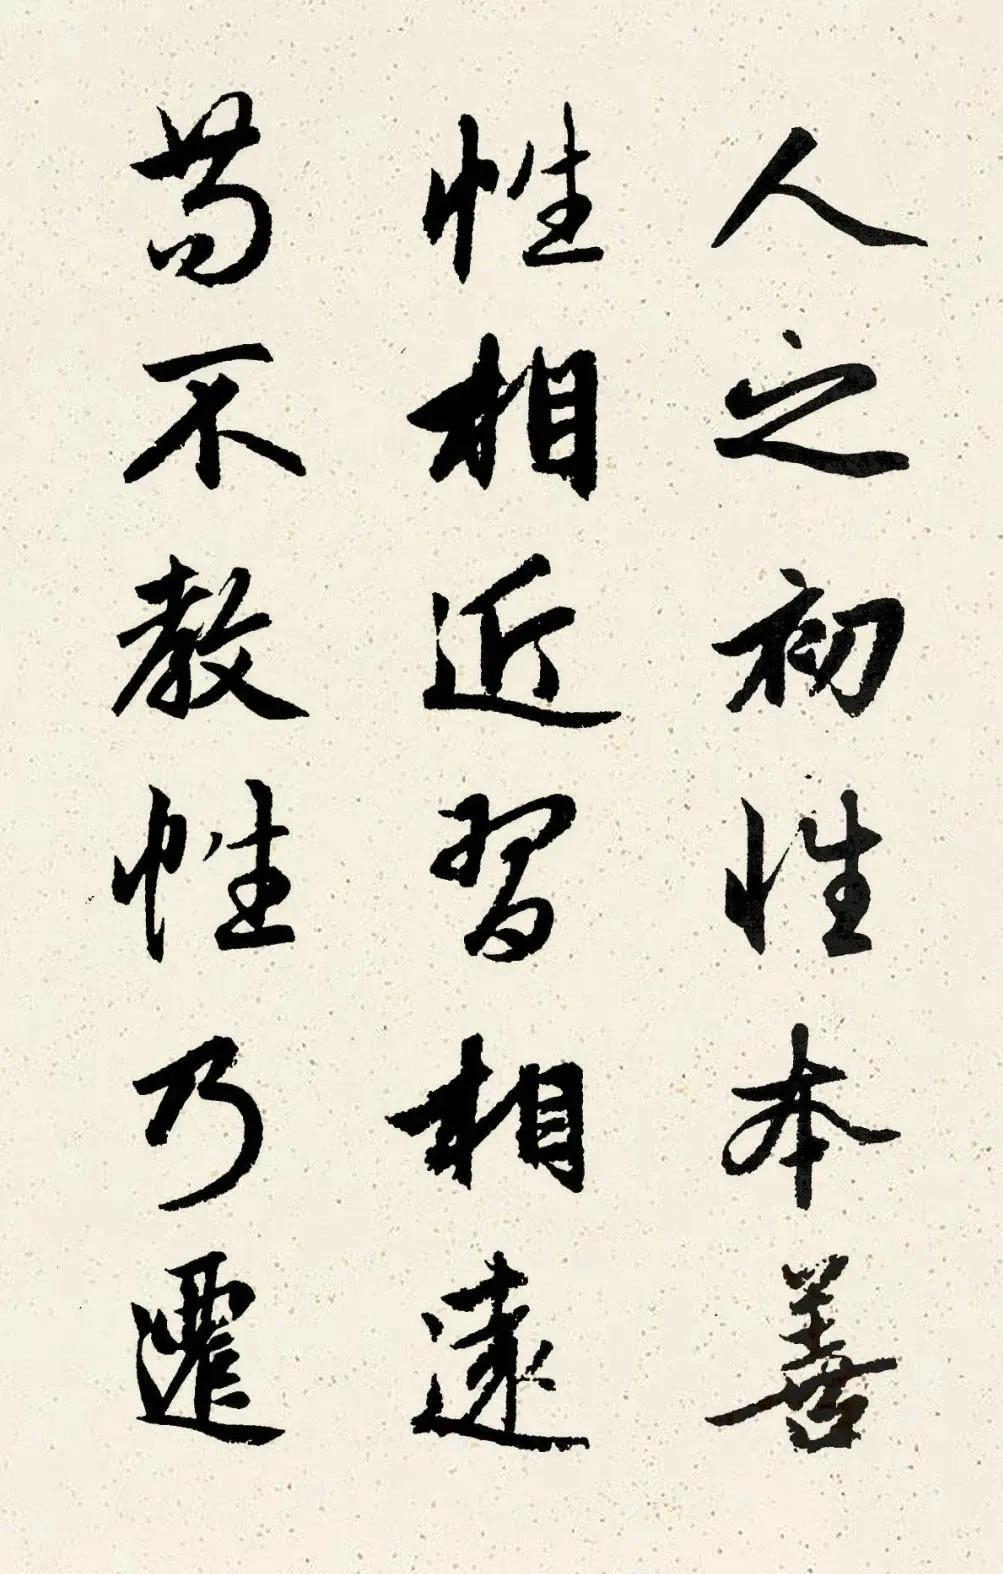 人之初性本善
性相近習相遠
苟不教性乃遷